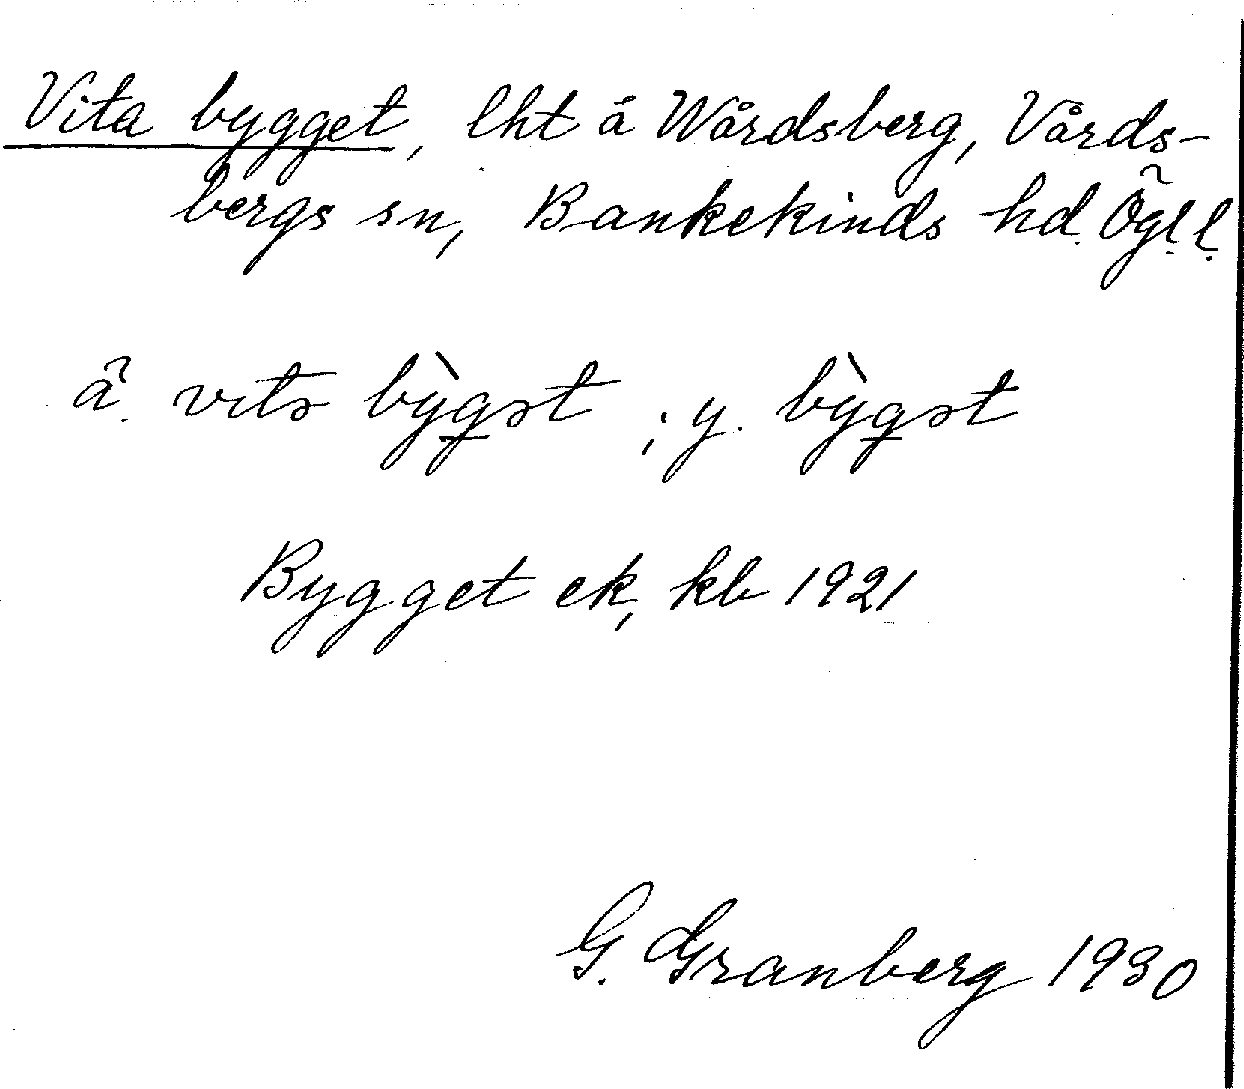 Vita bygget, lht å Wårdsberg, Vårds-
bergs sn, Bankekinds hd. Ögl l.
å vitə bỳgət ; y. bỳgət
Bygget ek, kb 1921
G. Granberg 1930